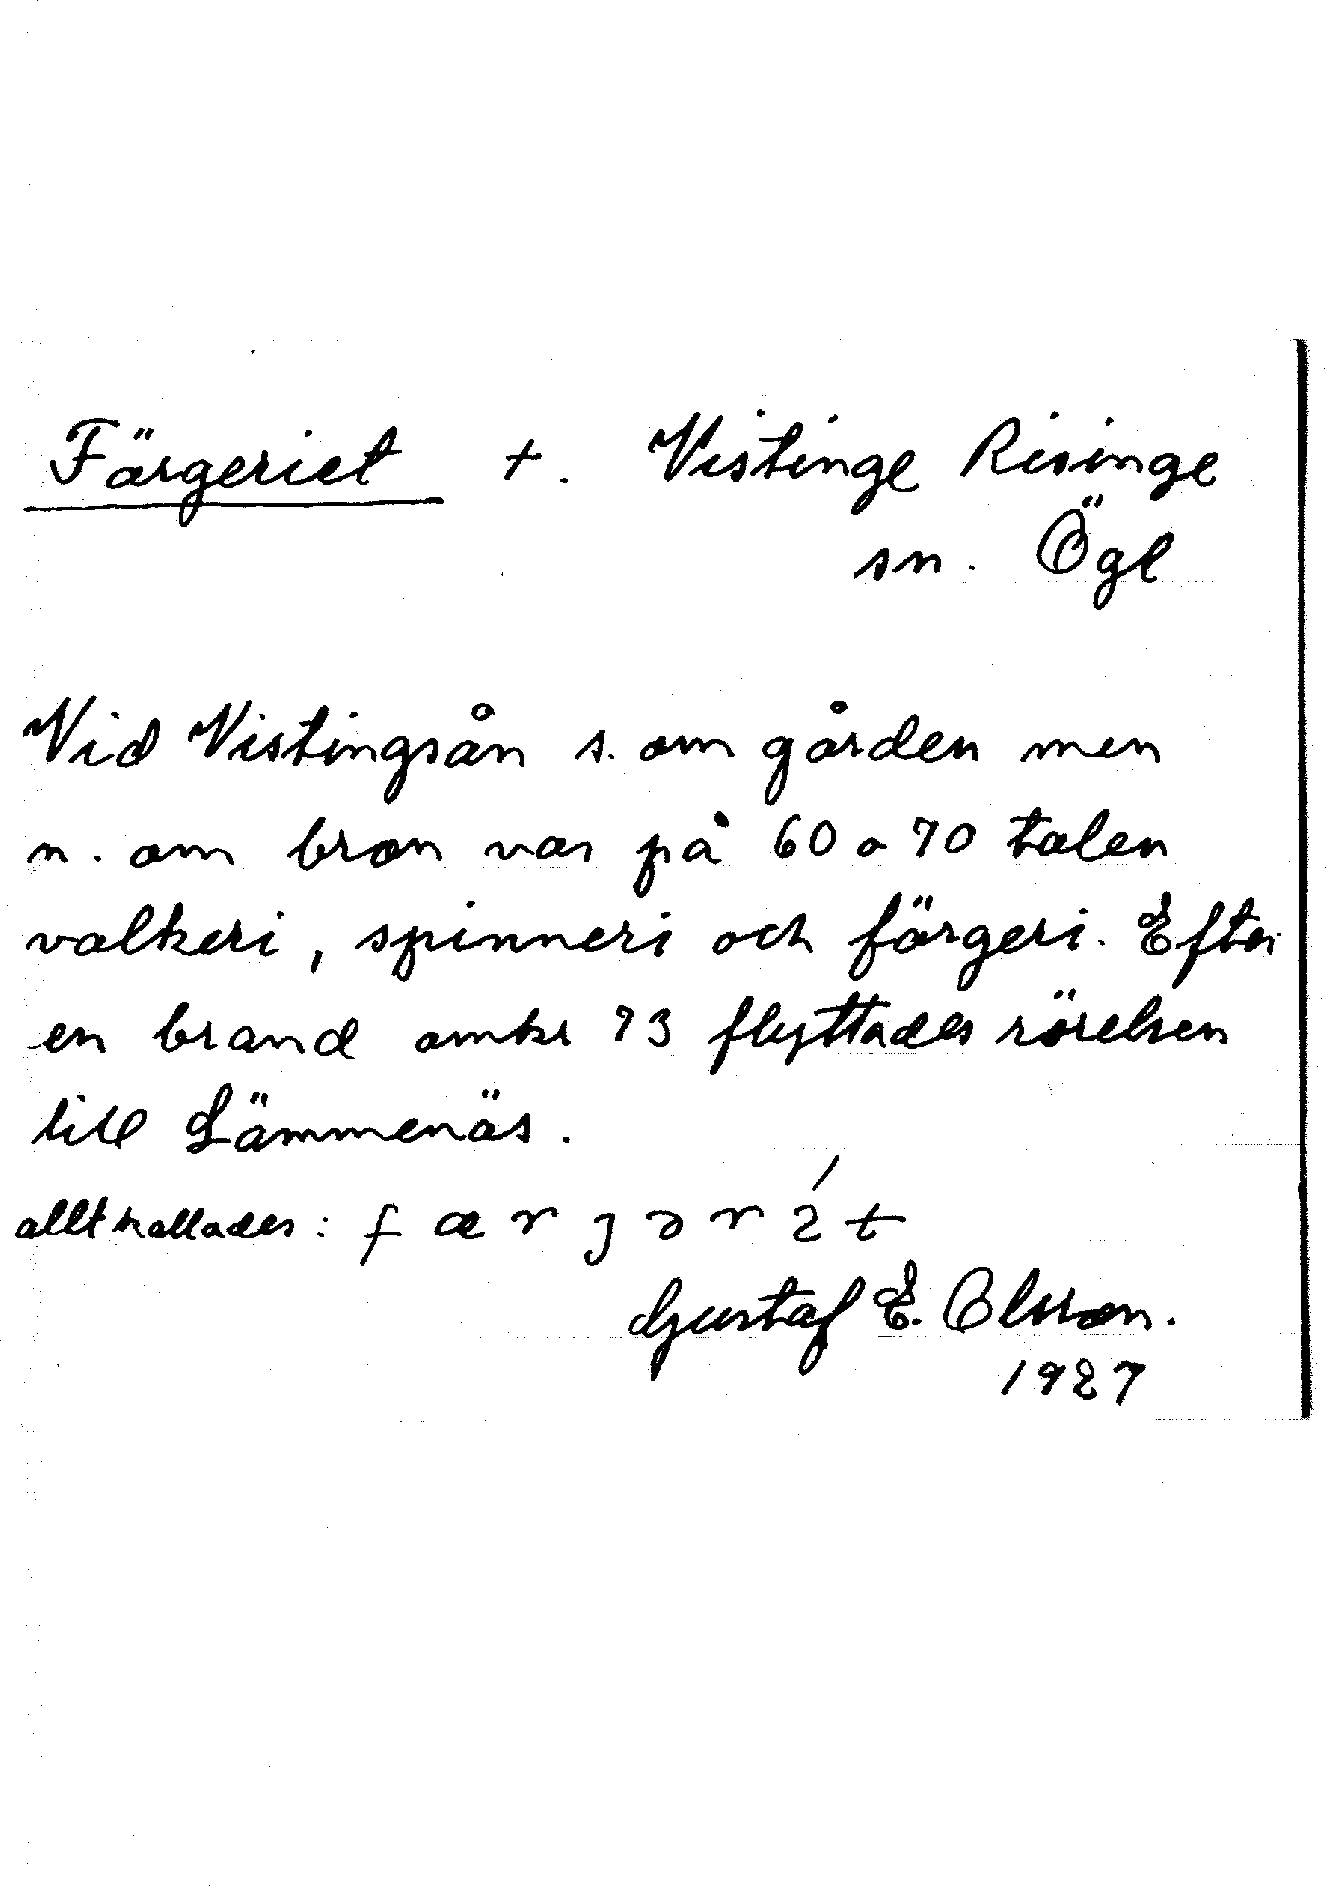 Färgeriet +. Vistinge Risinge
sn. Ögl
Vid Vistingsån s. om gården men
n. om bron var på 60 o 70 talen
valkeri, spinneri och färgeri. Efter
en brand omkr 73 flyttades rörelsen
till Lämmenäs.
allt kallades: færjər
Gustaf E. Olsson.
1927